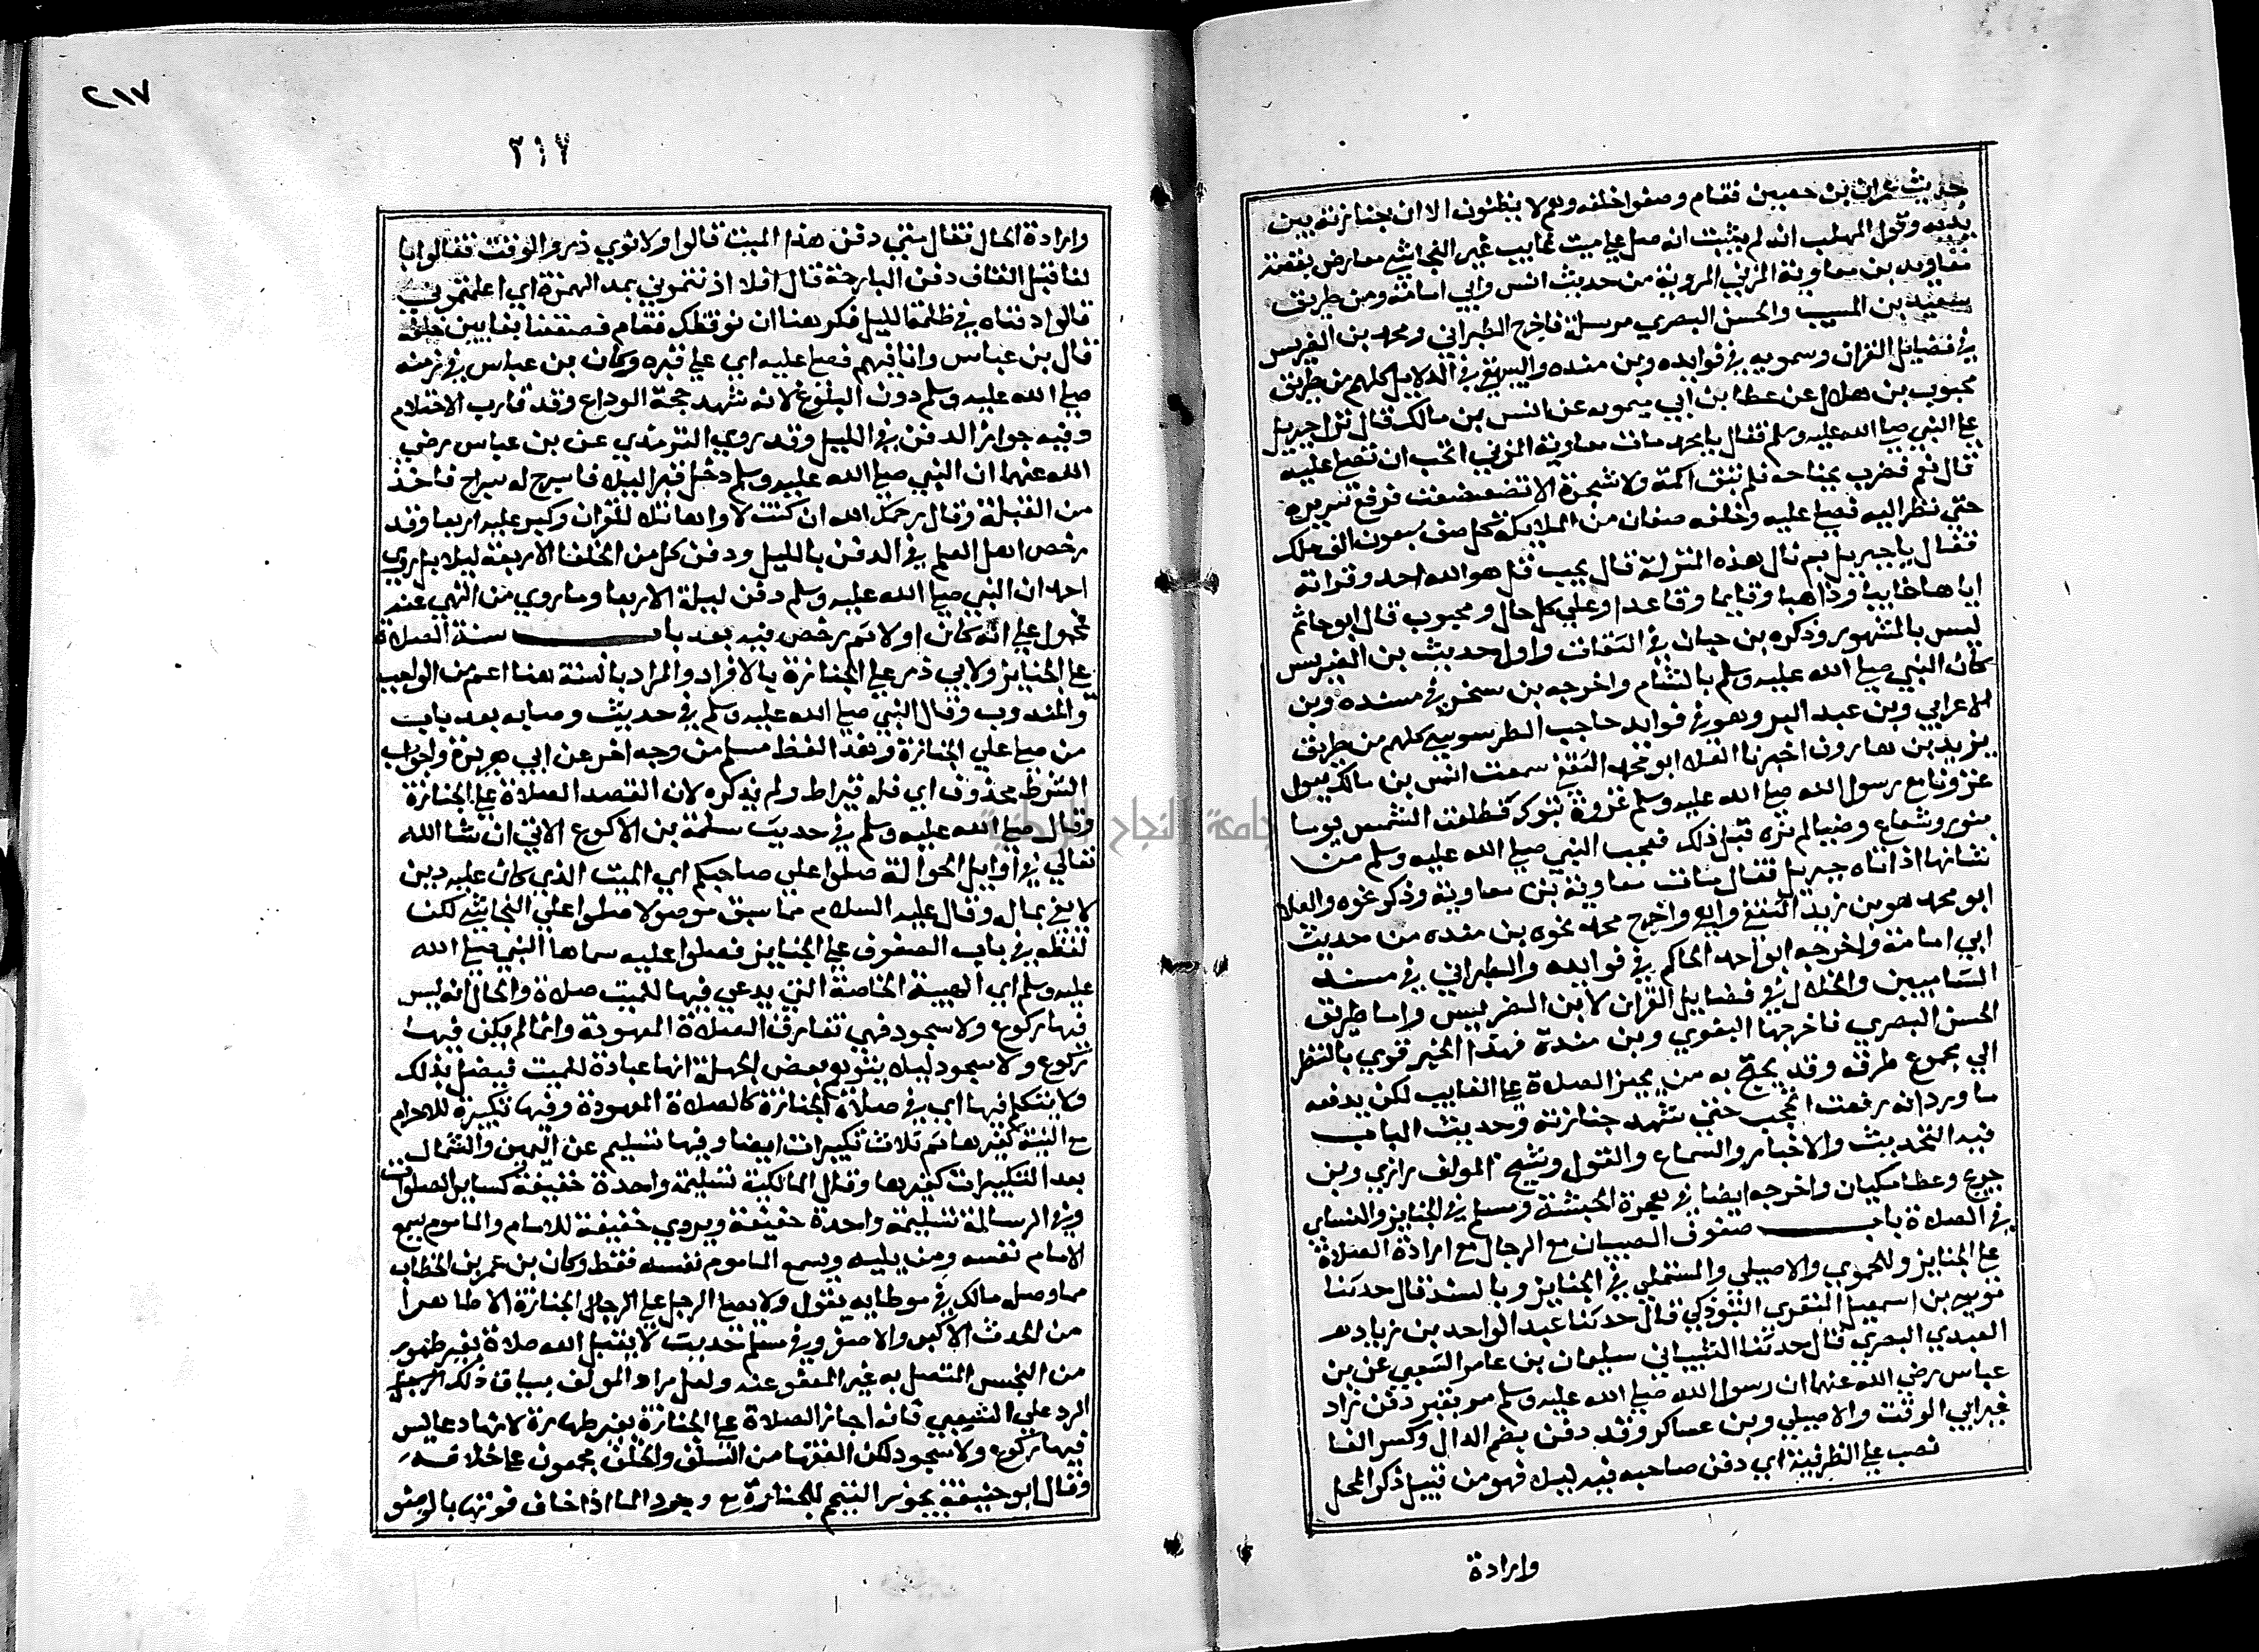 حديث عمران بن حصين فقام وصفوا خلفه وهم لا يظنون الا ان جنازته بين
يديه وقول المهلب انه لم يثبت انه صلى علي ميت غايب غير النجاشي معارض بقصة
معاوية بن معاوية المزني المروية من حديث انس وابي امامة ومن طريق
سعيد بن المسيب والحسن البصري مرسلة فاخرج الطبراني ومحمد بن الضريس
في فضايل القران وسمويه في فوايده وبن منده والبيهقي في الدلايل كلهم من طريق
محبوب بن هلال عن عطا بن ابي ميمونه عن انس بن مالك قال نزل جبريل
علي النبي صلي الله عليه وسلم فقال يا محمد مات معاوية المزني اتحب ان تصلي عليه
قال نعم فضرب بجناحه فلم تبق اكمة ولا شجرة الا تضعضعت فرفع سريره
حتي نظر اليه فصلي عليه وخلفه صفان من الملايكة كل صف سبعون الف ملك
فقال يا جبريل بم نال هذه المنزلة قال بحب قل هو الله احد وقراته
اياها جايبا وذاهبا وقايما وقاعدا وعلي كل حال ومحبوب قال ابو حاتم
ليس بالمشهور وذكره بن حبان في الثقات واول حديث بن الضريس
كان النبي صلي الله عليه وسلم بالشام واخرجه بن سنجر في مسنده وبن
الاعرابي وبن عبد البر وهو في فوايد حاجب الطرسوسي كلهم من طريق
يزيد بن هارون اخبرنا العلا ابو محمد الثقفي سمعت انس بن مالك يقول
غزونا مع رسول الله صلي الله عليه وسلم غزوة تبوك فطلعت الشمس يوما
بنور وشعاع وضيا لم نره قبل ذلك فعجب النبي صلي الله عليه وسلم من
شانها اذ اتاه جبريل فقال مات معاوية بن معاوية وذكر نحوه والعلا
ابو محمد هو بن زيد الثقفي واه واخرج محمد نحوه بن منده من حديث
ابي امامة واخرجه ابو احمد الحاكم في فوايده والطبراني في مسند
الشاميين والخلال في فضايل القران لا بن الضريس واما طريق
الحسن البصري فاخرجها البغوي وبن مندة فهذا الخبر قوي بالنظر
الي مجموع طرقه وقد يحتج به من يجيز الصلاة علي الغايب لكن يدفعه
ما ورد انه رفعت الحجب حتي شهد جنازته وحديث الباب
فيه التحديث والاخبار والسماع والقول وشيخ المولف رازي وبن
جريج وعطا مكيان واخرجه ايضا في هجرة الحبشة ومسلم في الجنايز والنساي
في الصلاة باب صفوف الصبيان مع الرجال مع ارادة الصلاة
علي الجنايز وللحموي والاصيلي والمستملي في الجنايز وبالسند قال حدثنا
موسي بن اسمعيل المنقري التبوذكي قال حدثنا عبد الواحد بن زياد هر
العبدي البصري قال حدثنا الشيباني سليمان بن عامر الشعبي عن بن
عباس رضي الله عنهما ان رسول الله صلي الله عليه وسلم مر بقبر دفن زاد
غير ابي الوقت والاصيلي وبن عساكر وقد دفن بضم الدال وكسر الفا
نصب علي الظرفية اي دفن صاحبه فيه ليلا فهو من قبيل ذكر المحل
وارادة
٢١٧
٢١٧
وارادة الحال فقال متي دفن هذا الميت قالوا ولا بوي ذر والوقت فقالوا با
لفا قبل القاف دفن البارحة قال افلا اذنتموني بمد الهمزة اي اعلمتموني
قالوا دفناه في ظلمة الليل فكرهنا ان نوقظك فقام فصففنا بفايين خلفه
قال بن عباس وانا فيهم فصلي عليه اي علي قبره وكان بن عباس في زمنه
صلي الله عليه وسلم دون البلوغ لانه شهد حجة الوداع وقد قارب الاحتلام
وفيه جواز الدفن في الليل وقد روي الترمذي عن بن عباس رضي
الله عنهما ان النبي صلي الله عليه وسلم دخل قبرا ليلا فاسرج له سراج فاخذ
من القبلة وقال رحمك الله ان كنت لاواها تلا للقران وكبر عليه اربعا وقد
رخص اهل العلم في الدفن بالليل ودفن كل من الخلفا الاربعة ليلا بل روي
احمد ان النبي صلي الله عليه وسلم دفن ليلة الاربعا وما روي من النهي عنه
محمول علي انه كان اولا ثم رخص فيه بعد باب سنة الصلاة
علي الجنايز ولابي ذر علي الجنازة بالافراد والمراد بالسنة هنا اعم من الواجب
والمندوب وقال النبي صلي الله عليه وسلم في حديث وصله بعد باب
من صلي علي الجنازة وهذا لفظ مسلم من وجه اخر عن ابي هريرة وجواب
الشرط محذوف اي فله قيراط ولم يذكره لان القصد الصلاة علي الجنازة
وقال صلي الله عليه وسلم في حديث سلمة بن الاكوع الاتي ان شا الله
تعالي في اوايل الحوالة صلوا علي صاحبكم اي الميت الذي كان عليه دين
لا يفي بماله وقال عليه السلام مما سبق موصولا صلوا علي النجاشي لكن
لفظه في باب الصفوف علي الجنايز فصلوا عليه سماها النبي صلي الله
عليه وسلم اي الهيية الخاصة التي يدعي فيها للميت صلاة والحال انه ليس
فيها ركوع ولا سجود فهي تفارق الصلاة المعهودة وانما لم يكن فيها
ركوع ولا سجود ليلا يتوهم بعض الجهلة انها عبادة للميت فيضل بذلك
ولا يتكلم فيها اي في صلاة الجنازة كالصلاة المعهودة وفيها تكبيرة للاحرام
مع النية كغيرها ثم ثلاث تكبيرات ايضا وفيها تسليم عن اليمين والشمال
بعد التكبيرات كغيرها وقال المالكية تسليمة واحدة خفيفة كساير الصلوات
وفي الرسالة تسليمة واحدة خفيفة ويروي خفيفة للامام والماموم يسمع
الامام نفسه ومن يليه ويسمع الماموم نفسه فقط وكان بن عمر بن الخطاب
مما وصله مالك في موطايه يقول ولا يصلي الرجل علي الرجل الجنازة الا طاهرا
من الحدث الاكبر والاصغر وفي مسلم حديث لا يقبل الله صلاة بغير طهور
من النجس المتصل به غير المعفو عنه ولعل مراد المولف بسياق ذلك
الرد علي الشعبي فانه اجاز الصلاة علي الجنازة بغير طهارة لانها دعا ليس
فيها ركوع ولا سجود لكن الفقها من السلف والخلف مجمعون علي خلافه
وقال ابو حنيفة يجوز التيمم للجنازة مع وجود الما اذا خاف فوتها بالوضو